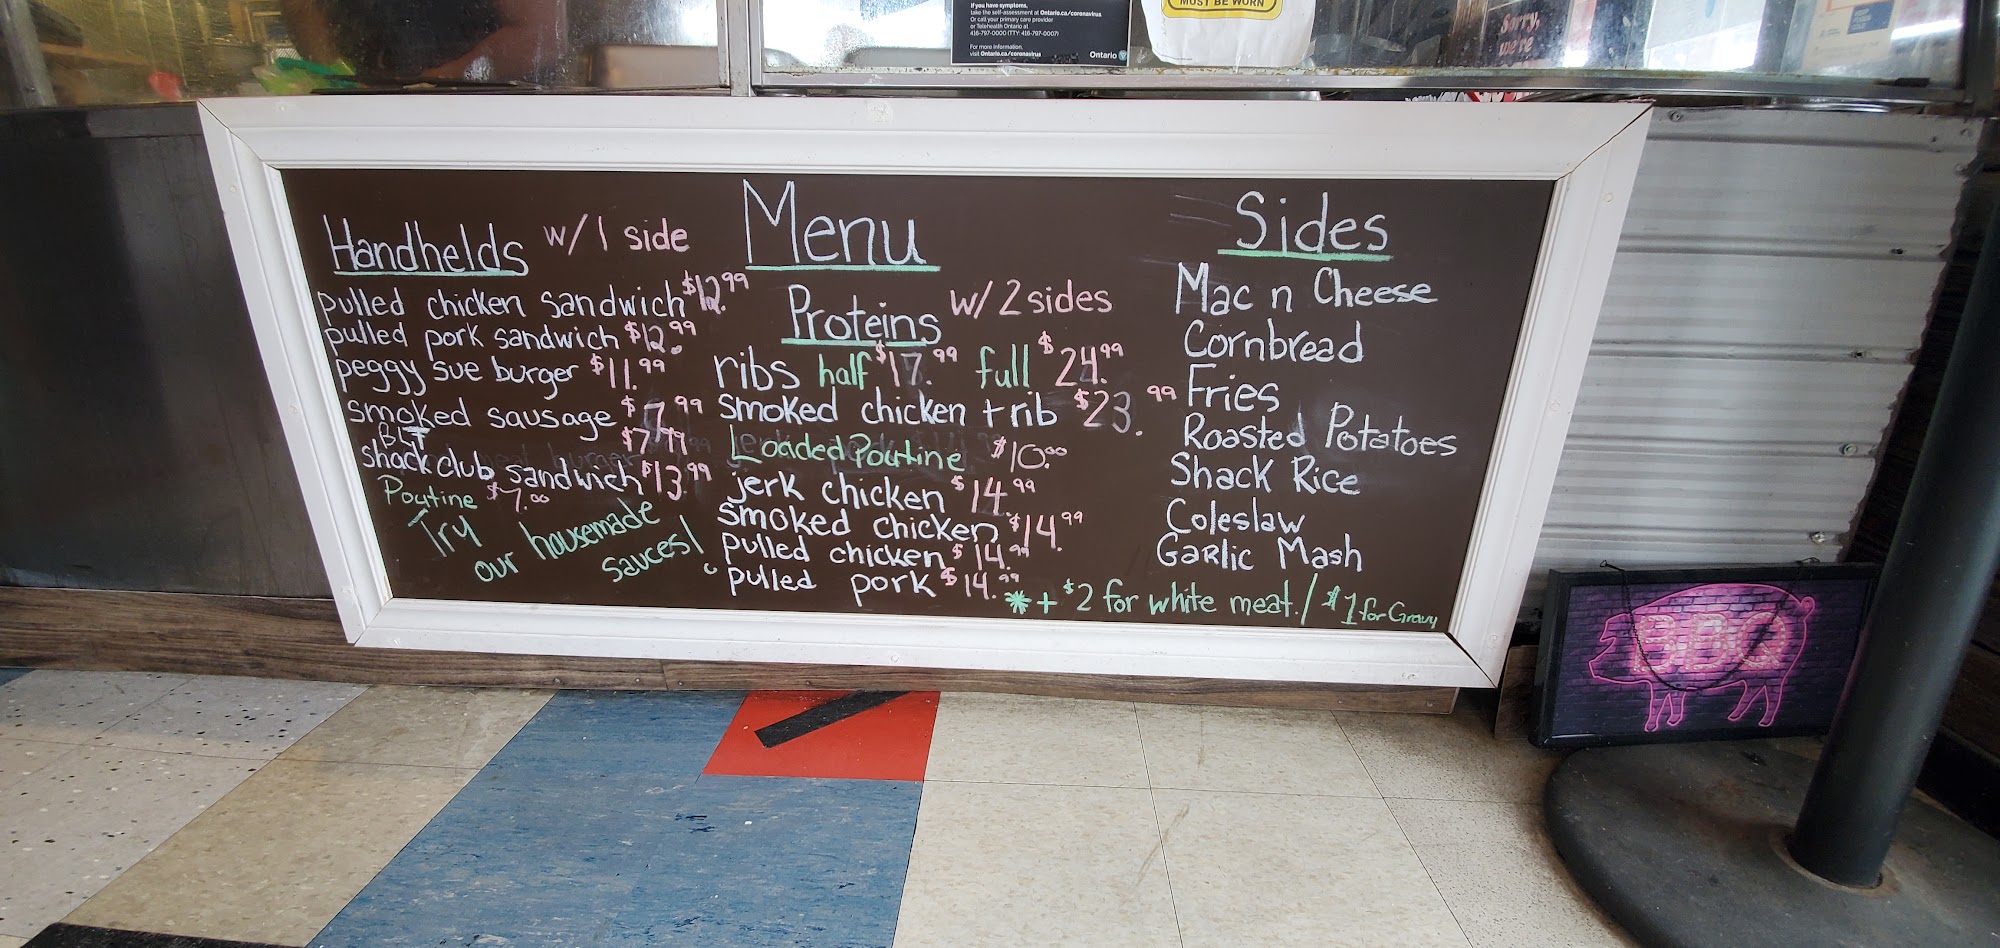 If you have symptoms,
take the self-assessment at Ontario.ca/coronavirus
Or call your primary care provider
or Telehealth Ontario at
416-797-0000 (TTY: 416-797-0007)
For more information,
visit Ontario.ca/coronavirus
Ontario
MUST BE WORN
Sorry,
we're
Menu
Handhelds w/1 side
pulled chicken sandwich $12.99
pulled pork sandwich $12.99
peggy sue burger $11.99
smoked sausage $7.99
BLT $7.99
shack club sandwich $13.99
Poutine $7.00
Try
our housemade
sauces!
Proteins w/2 sides
ribs half $17.99 full $24.99
smoked chicken + rib $23.99
Loaded Poutine $10.00
jerk chicken $14.99
smoked chicken $14.99
pulled chicken $14.99
pulled pork $14.99
Sides
Mac n Cheese
Cornbread
Fries
Roasted Potatoes
Shack Rice
Coleslaw
Garlic Mash
* + $2 for white meat. / $1 for Gravy
BBQ